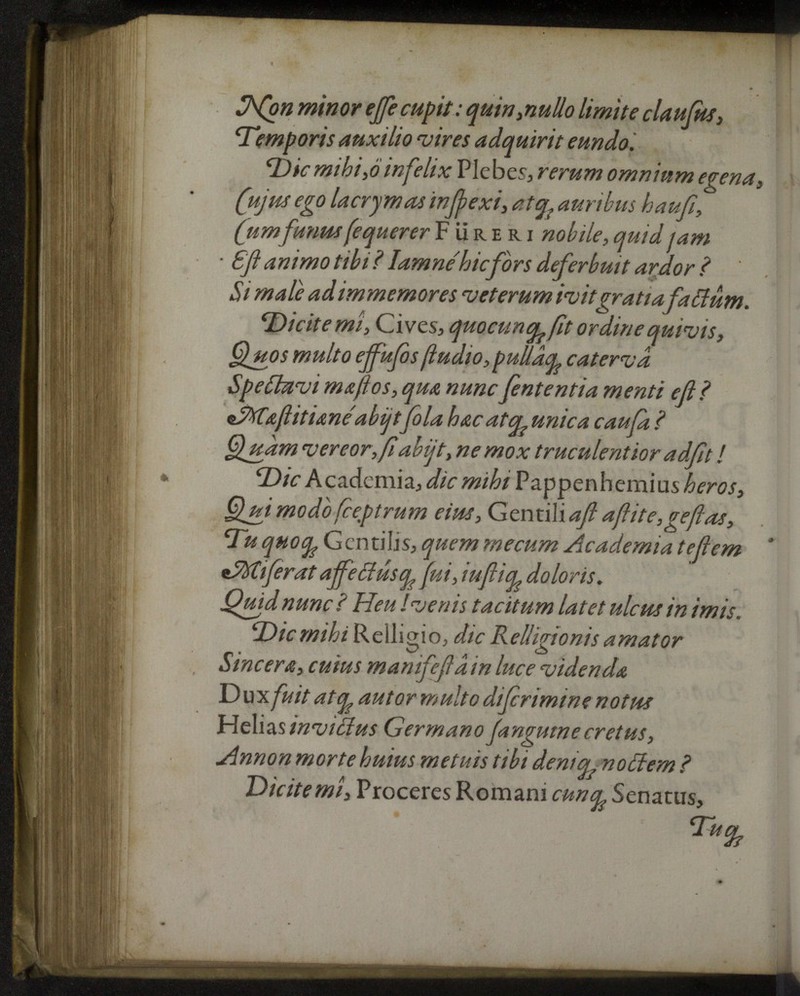 Non minor eſſe cupit: quin, nullo limite clauſus,
Temporis auxilio vires adquirit eundo.
Dic mihi, ô infelix Plebes, rerum omnium egena,
Cujus ego lacrymas inſpexi, atq; auribus hauſi,
Cum funus ſequerer FÜRERI nobile, quid jam
Eſt animo tibi? Iamnè hic fòrs deferbuit ardor?
Si malè ad immemores veterum ivit gratia factûm.
Dicite mî, Cives, quocunq; ſit ordine quivis,
Quos multo effuſos ſtudio, pullâq; catervâ
Spectavi mæſtos, quæ nunc ſententia menti eſt?
Mæſtitiané abijt ſola hæc atq; unica cauſa?
Quàm vereor, ſi abijt, ne mox truculentior adſit!
Dic Academia, dic mihi Pappenhemius heros,
Qui modò ſceptrum eius, Gentili aſt aſtite, geſtas,
Tu quoq; Gentilis, quem mecum Academia teſtem
Miſerat affectúsq; fui, iuſtiq; doloris.
Quid nunc? Heu! venis tacitum latet ulcus in imis.
Dic mihi Relligio, dic Relligionis amator
Sinceræ, cuius manifeſtâ in luce videndæ
Dux fuit atq; autor multo diſcrimine notus
Helias invictus Germano ſanguine cretus,
Annon morte huius metuis tibi deniq; noctem?
Dicite mî, Proceres Romani cunq; Senatus,
Tuq;